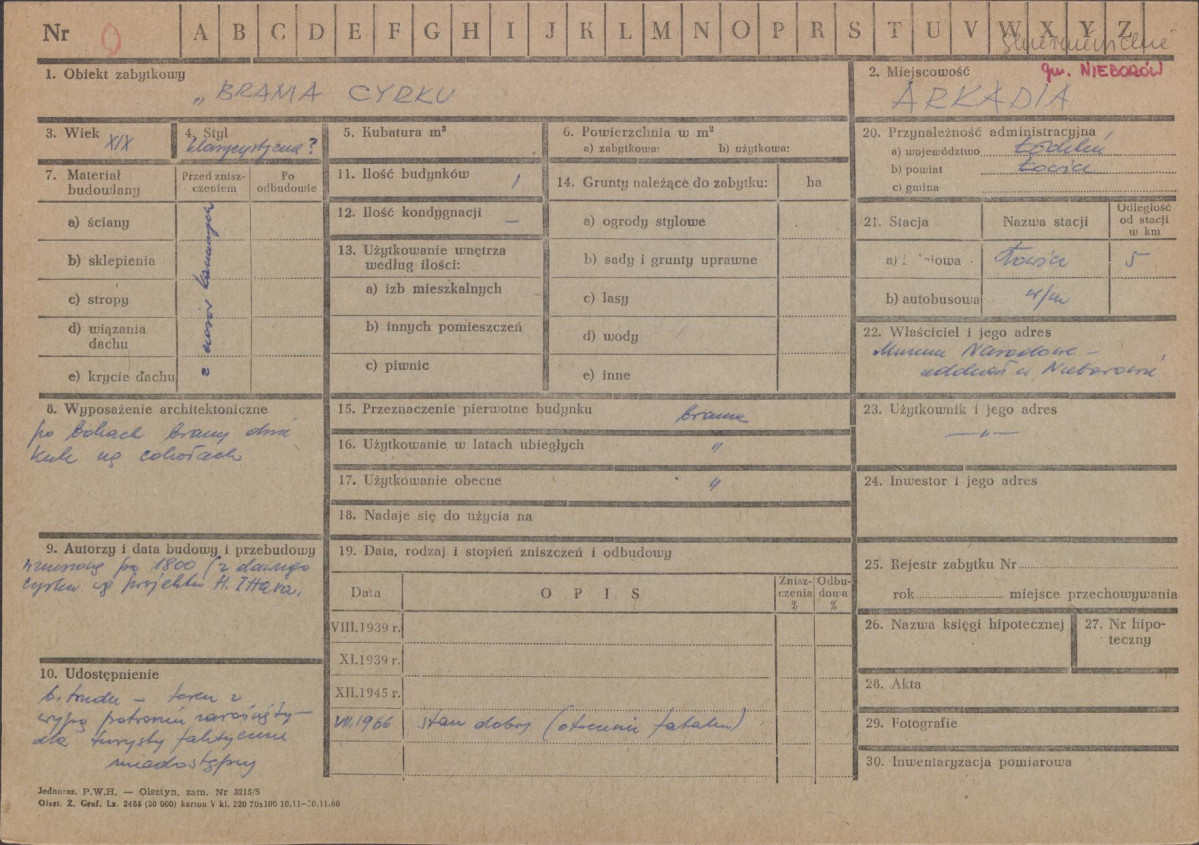 Nr 0 A B C D E F G H I J K L M N O P R S T U V W X Y Z
1. Obiekt zabytkowy
„BRAMA CYRKU
2. Miejscowość
gm. NIEBORÓW
ARKADIA
3. Wiek XIX
4. Styl
klasycystyczna?
5. Kubatura m³
6. Powierzchnia w m²
a) zabytkowa: b) użytkowa:
7. Materiał budowlany
Przed zniszczeniem
Po odbudowie
a) ściany
b) sklepienia
c) stropy
d) wiązania dachu
e) krycie dachu
z ciosów kamiennych
8. Wyposażenie architektoniczne
po bokach bramy dwie
kule na cokołach
9. Autorzy i data budowy i przebudowy
wzniesiona po 1800 (z dawnego
cyrku wg projektu H. Ittara.
10. Udostępnienie
b. trudne – teren z
wyspą
dla turysty faktycznie
niedostępny
11. Ilość budynków 1
12. Ilość kondygnacji –
13. Użytkowanie wnętrza
według ilości:
a) izb mieszkalnych
b) innych pomieszczeń
c) piwnic
14. Grunty należące do zabytku: ha
a) ogrody stylowe
b) sady i grunty uprawne
c) lasy
d) wody
e) inne
15. Przeznaczenie pierwotne budynku brama
16. Użytkowanie w latach ubiegłych "
17. Użytkowanie obecne "
18. Nadaje się do użycia na
19. Data, rodzaj i stopień zniszczeń i odbudowy
Data OPIS Zniszczenia % Odbudowa %
VIII.1939 r.
XI.1939 r.
XII.1945 r.
VII.1966 stan dobry (otoczenie fatalne)
20. Przynależność administracyjna
a) województwo Łódzkie
b) powiat Łowicz
c) gmina
21. Stacja Nazwa stacji Odległość od stacji w km
a) Łowicz 5
b) autobusowa w/m
22. Właściciel i jego adres
Muzeum Narodowe –
oddział w Nieborowie
23. Użytkownik i jego adres
— " —
24. Inwestor i jego adres
25. Rejestr zabytku Nr
rok miejsce przechowywania
26. Nazwa księgi hipotecznej
27. Nr hipoteczny
28. Akta
29. Fotografie
30. Inwentaryzacja pomiarowa
Jednoraz. P.W.H. — Olsztyn, zam. Nr 3215/S
Olszt. Z. Graf. Lz. 2485 (30 000) karton V kl. 220 70x100 10.11—30.11.60